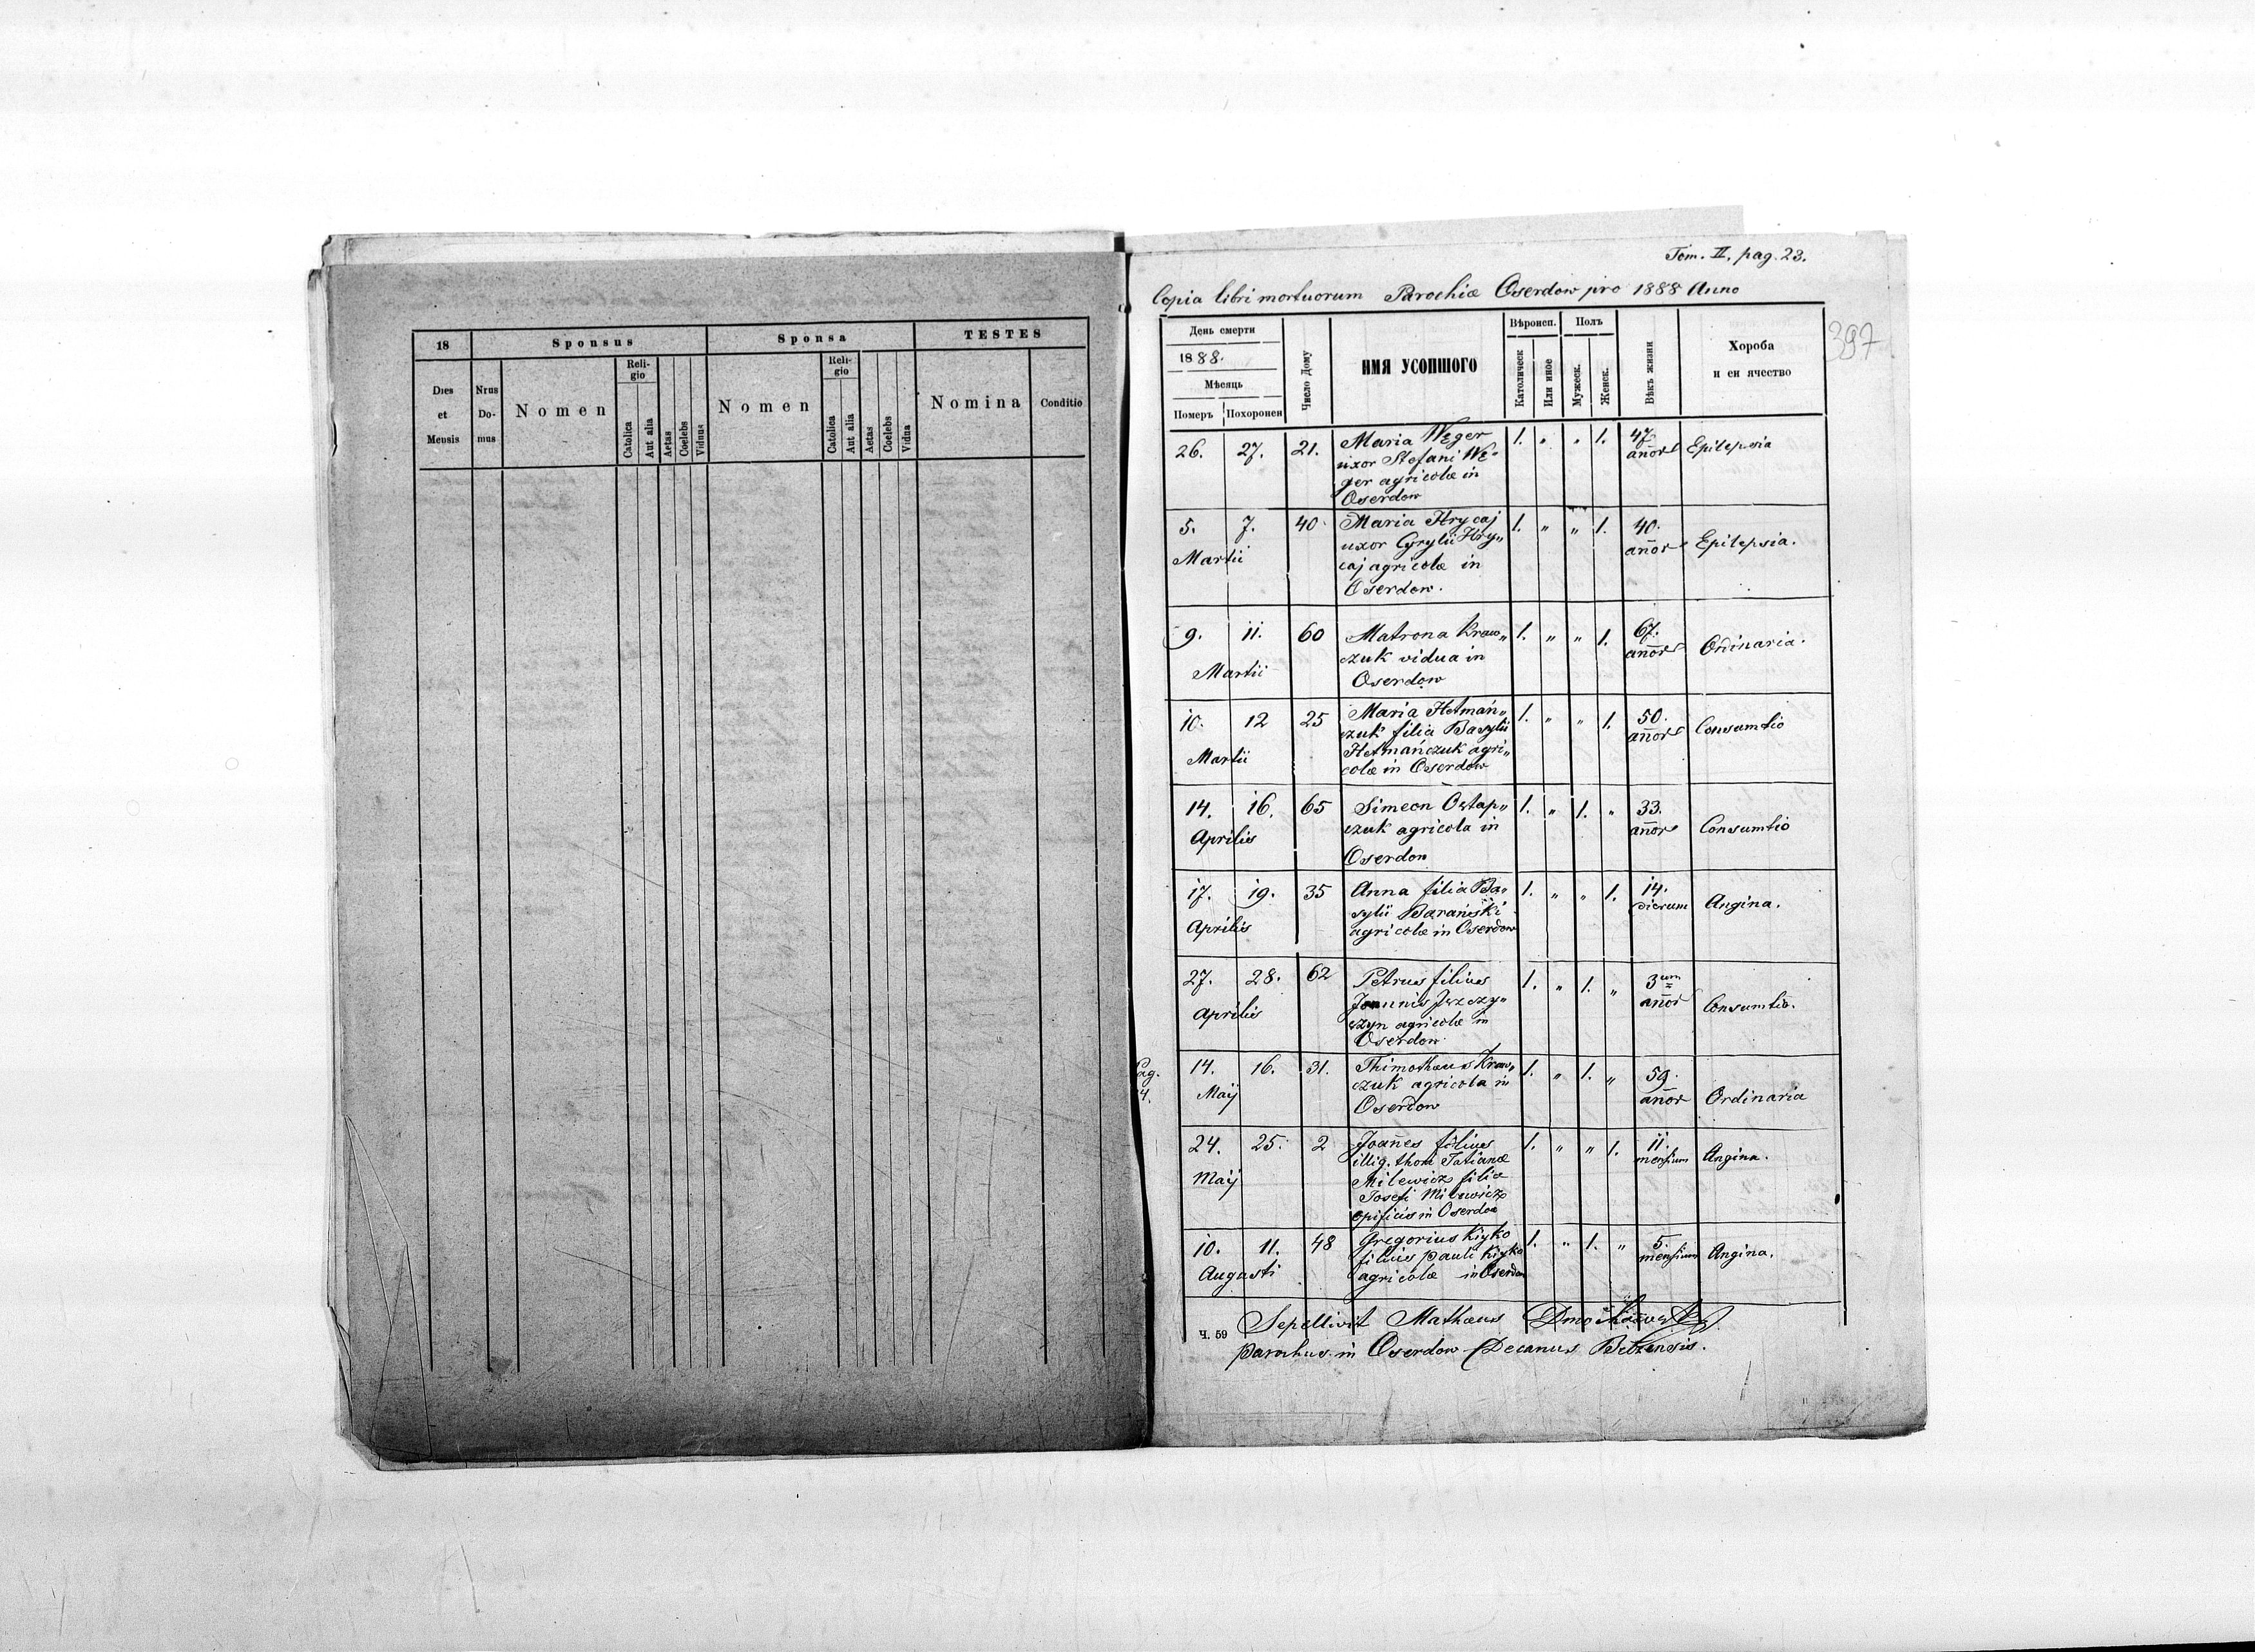 18
Sponsus
Sponsa
TESTES
Dies et Mensis
Nrus Do-mus
Nomen
Reli-gio
Catolica
Aut alia
Aetas
Coelebs
Viduus
Nomen
Reli-gio
Catolica
Aut alia
Aetas
Coelebs
Vidua
Nomina
Conditio
Tom. II. pag. 23.
Copia libri mortuorum Parochiæ Oserdow pro 1888 Anno
397
День смерти
1888.
Мѣсяць
Померъ
Похоронен
Число Дому
ИМЯ УСОПШОГО
Вѣроисп.
Католическ
Или иное
Полъ
Мужеск.
Женск.
Вѣкъ жизни
Хороба
и еи ячество
26. 27. 21. Maria Węger 1. " " 1. 47. Epilepsia
uxor Stefani Wę- añor
ger agricolæ in
Oserdow
5. 7. 40 Maria Hrycaj 1. " " 1. 40. Epilepsia.
Martii uxor Cyrylii Hry„ añor
caj agricolæ in
Oserdow.
9. 11. 60 Matrona Kraw„ 1. " " 1. 67. Ordinaria.
Martii czuk vidua in añor
Oserdow
10. 12 25 Maria Hetmań„ 1. " " 1. 50. Consumtio
Martii czuk filia Basylii añor
Hetmańczuk agri„
colæ in Oserdow
14. 16. 65 Simeon Ostap„ 1. " 1. " 33. Consumtio
Aprilis czuk agricola in añor
Oserdow
17. 19. 35 Anna filia Ba„ 1. " " 1. 14. Angina.
Aprilis sylii Barański dierum
agricolæ in Oserdow
27. 28. 62 Petrus filius 1. " 1. " 3um Consumtio.
Aprilis Joannis Jszczy„ añor
szyn agricolæ in
Oserdow
Pag.
14. 16. 31. Thimotheus Kraw„ 1. " 1. " 59. Ordinaria
Maij czuk agricola in añor
Oserdow
24. 25. 2 Joañes filius 1. " " 1. 11. Angina.
Maij illig. thori Tatianæ mensium
Milewicz filia
Josefi Milewicz
opificis in Oserdow
10. 11. 48 Gregorius Kiyko 1. " 1. " 5. Angina.
Augusti filius Pauli Kiyko mensium
agricolæ in Oserdow
Ч. 59
Sepellivit Mathæus
Parochus in Oserdow Decanus Belzensis.